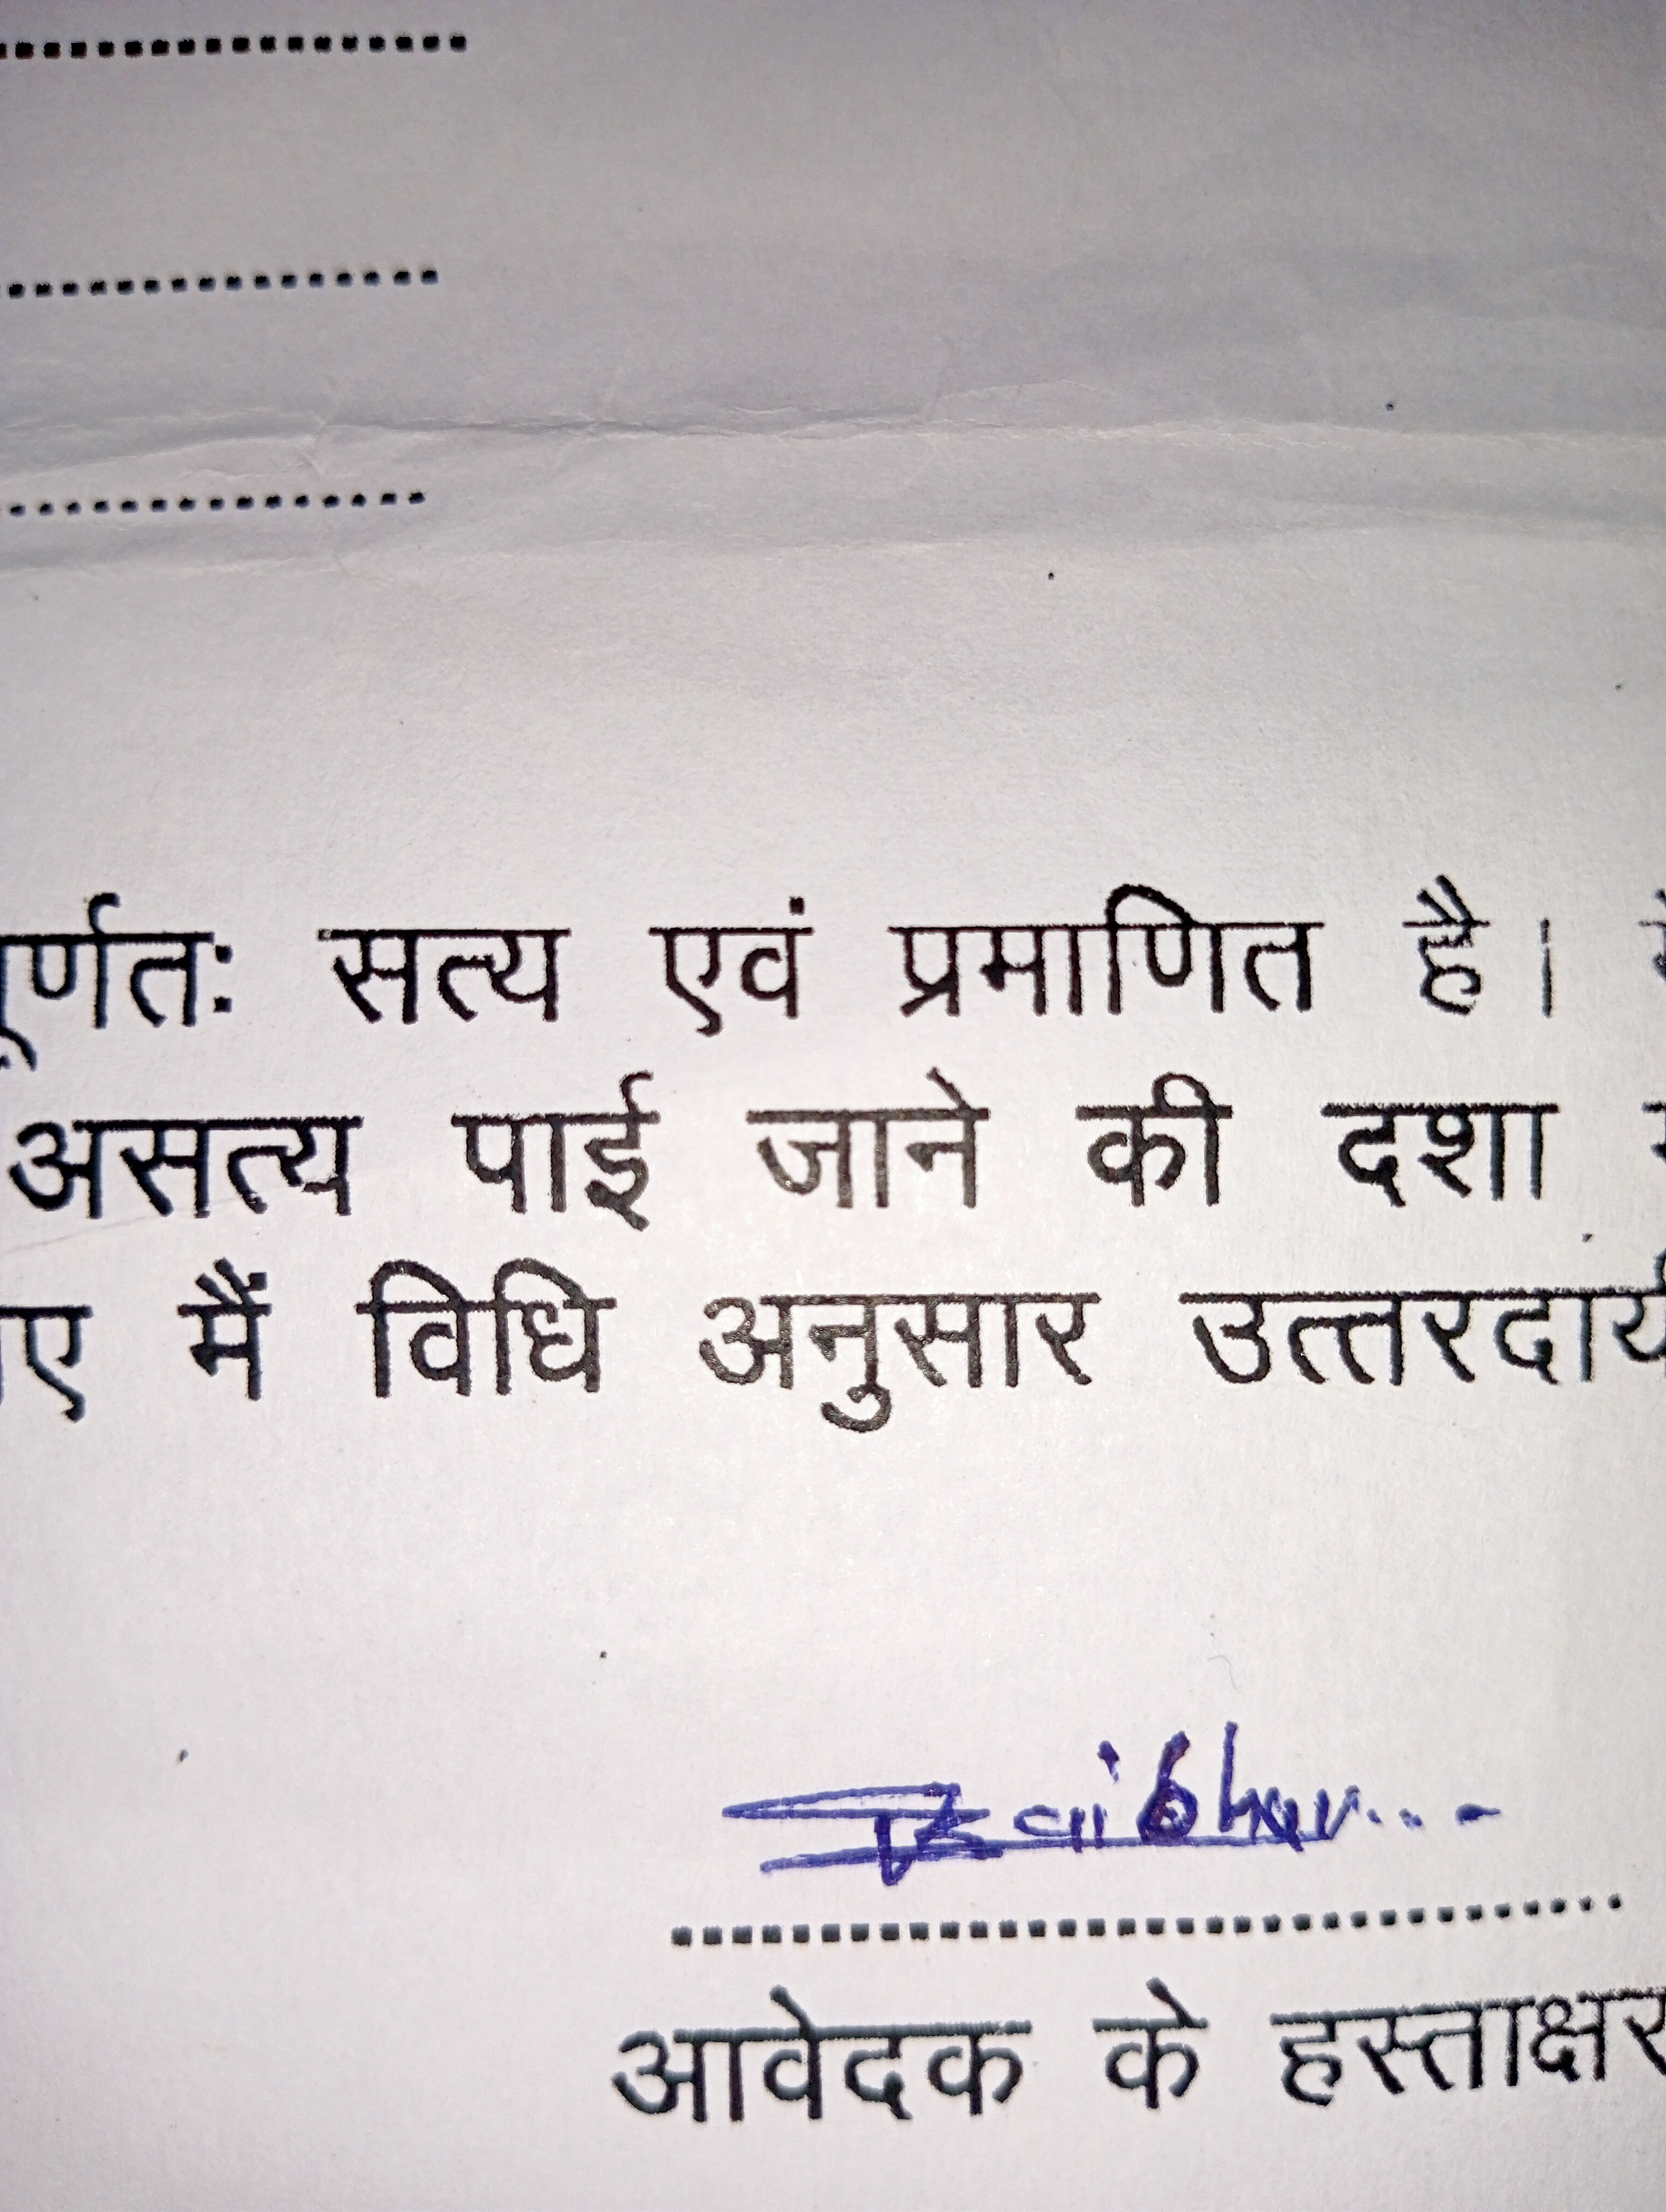 पूर्णतः सत्य एवं प्रमाणित है।
असत्य पाई जाने की दशा
मैं विधि अनुसार उत्तरदायी
Baibhav...-
आवेदक के हस्ताक्षर